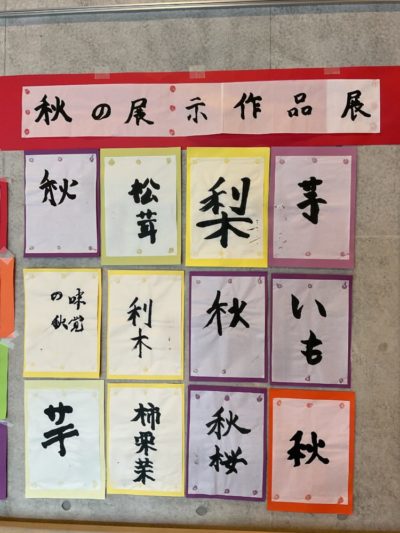 秋の展示作品展
秋
松茸
梨
芋
味覚
の秋
利木
秋
いも
芋
柿栗
秋桜
秋